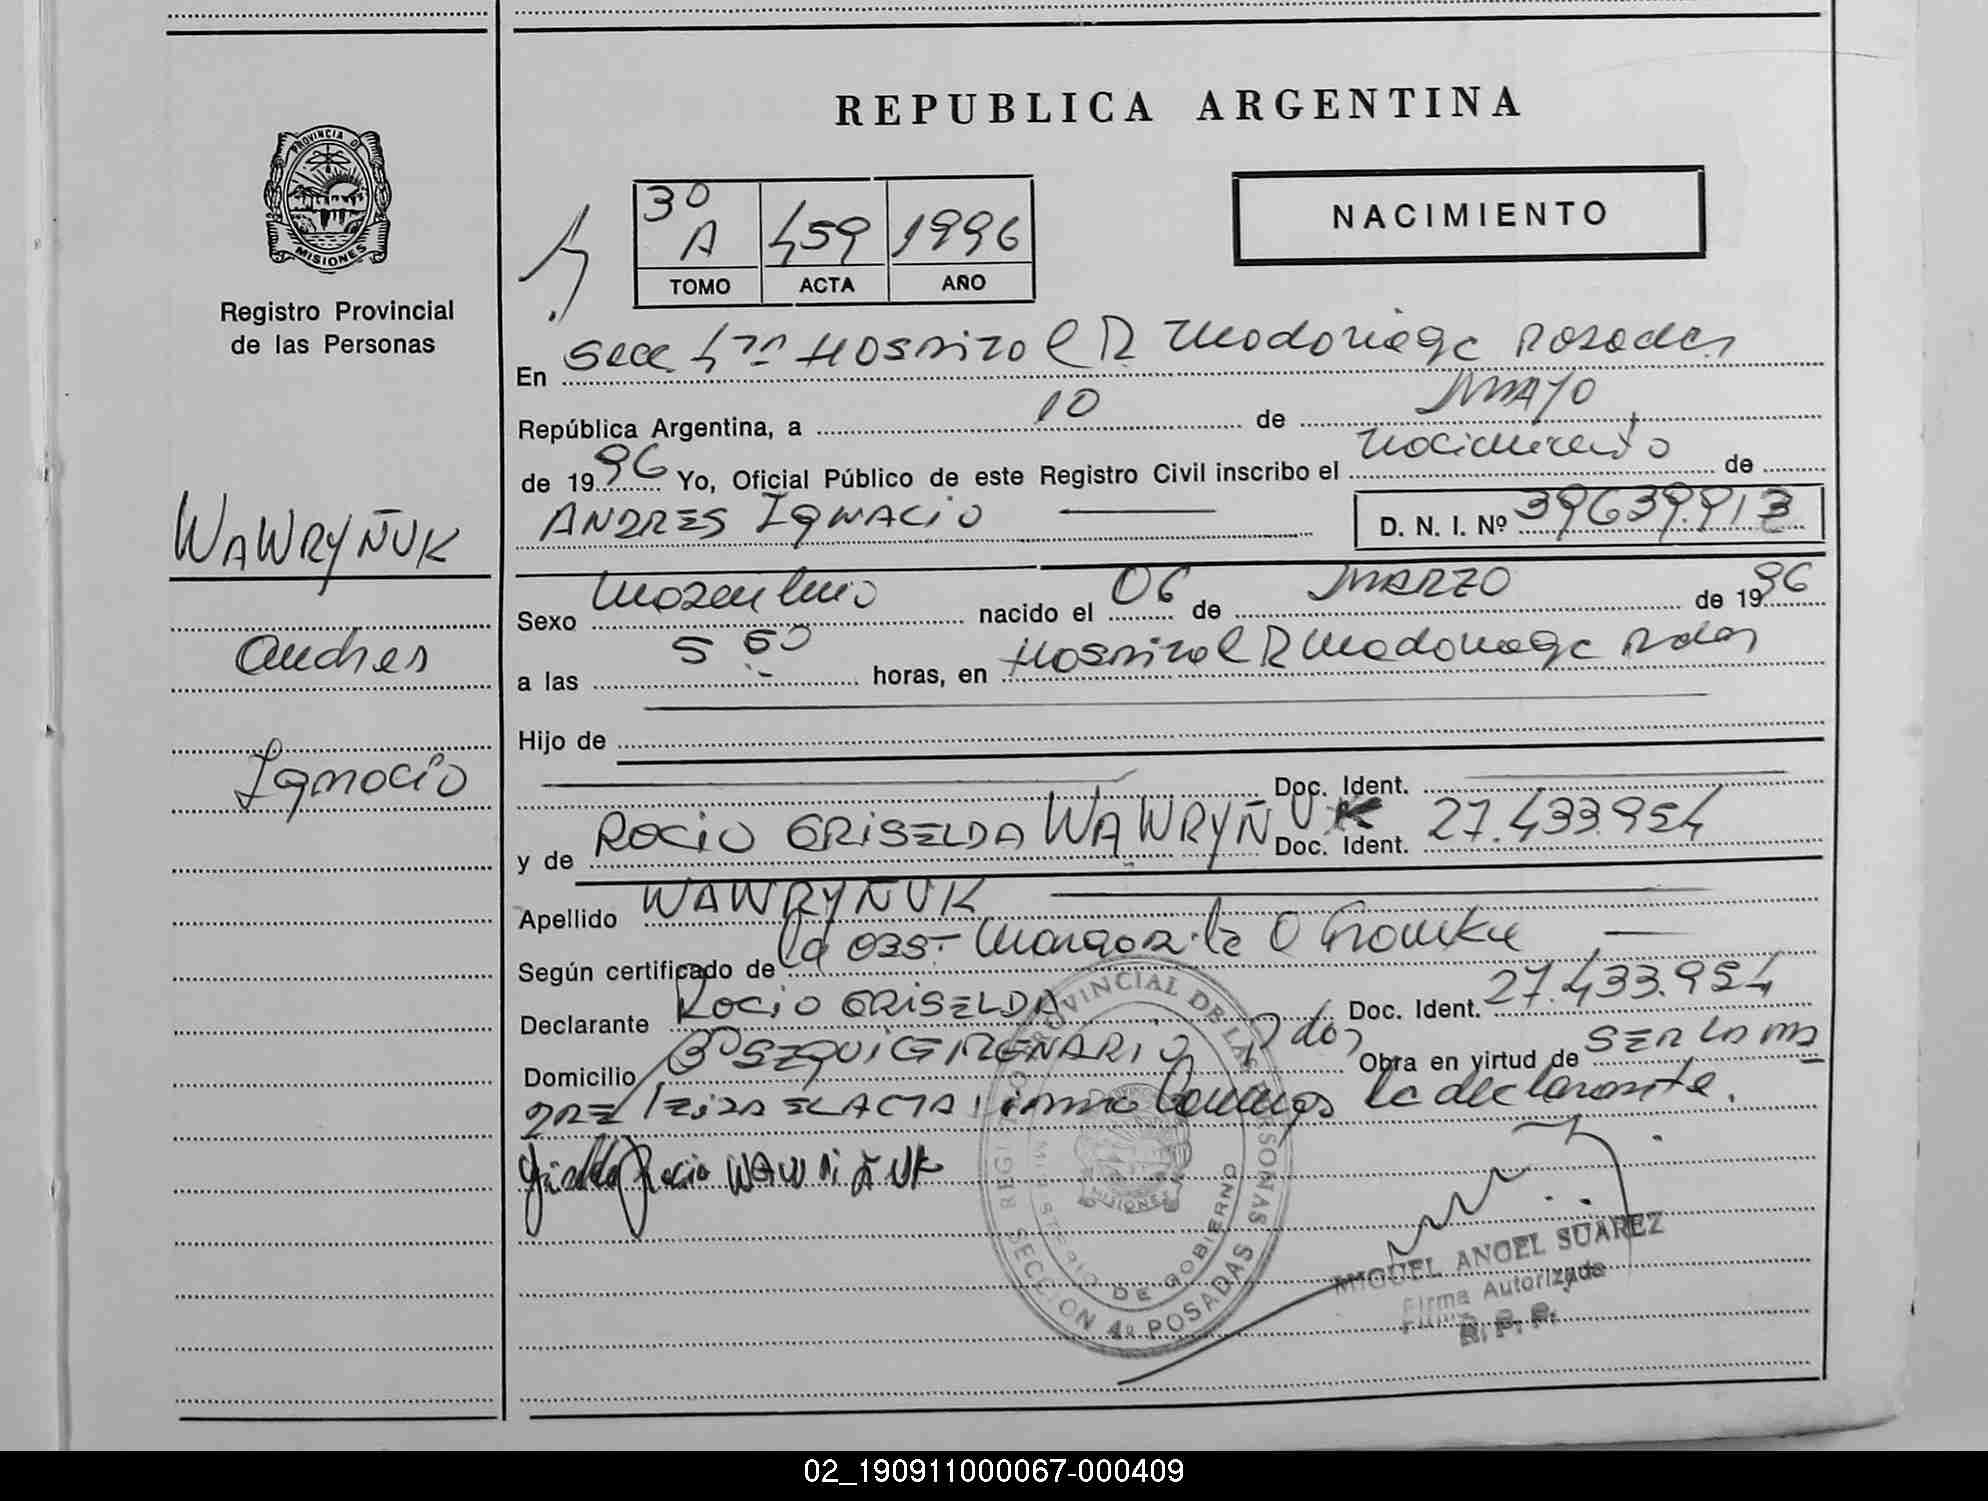 REPUBLICA ARGENTINA
PROVINCIA DE
MISIONES
Registro Provincial
de las Personas
3º
A
459
1996
TOMO
ACTA
AÑO
NACIMIENTO
En Secc 4ta Hospital R Madariaga Posadas
República Argentina, a 10 de MAYO
de 1996 Yo, Oficial Público de este Registro Civil inscribo el nacimiento de
ANDRES IGNACIO D. N. I. Nº 39639.913
WAWRYÑUK
Andres
Ignacio
Sexo masculino nacido el 06 de MARZO de 1996
a las 5 50 horas, en Hospital R Madariaga Pdas
Hijo de
Doc. Ident.
y de ROCIO GRISELDA WAWRYÑUK Doc. Ident. 27.433.954
Apellido WAWRYÑUK
Según certificado de la Obst. Margarita O
Declarante ROCIO GRISELDA Doc. Ident. 27.433.954
Domicilio Bº SEZQUICENTENARIO Pdas Obra en virtud de SER LA MA
DRE / LEIDA EL ACTA, firma conmigo la declarante.
Griselda Rocio WAWRIÑUK
REGISTRO PROVINCIAL DE LAS PERSONAS
MINISTERIO DE GOBIERNO
MISIONES
SECCION 4º POSADAS
MIGUEL ANGEL SUAREZ
Firma Autorizada
R. P. P.
02_190911000067-000409